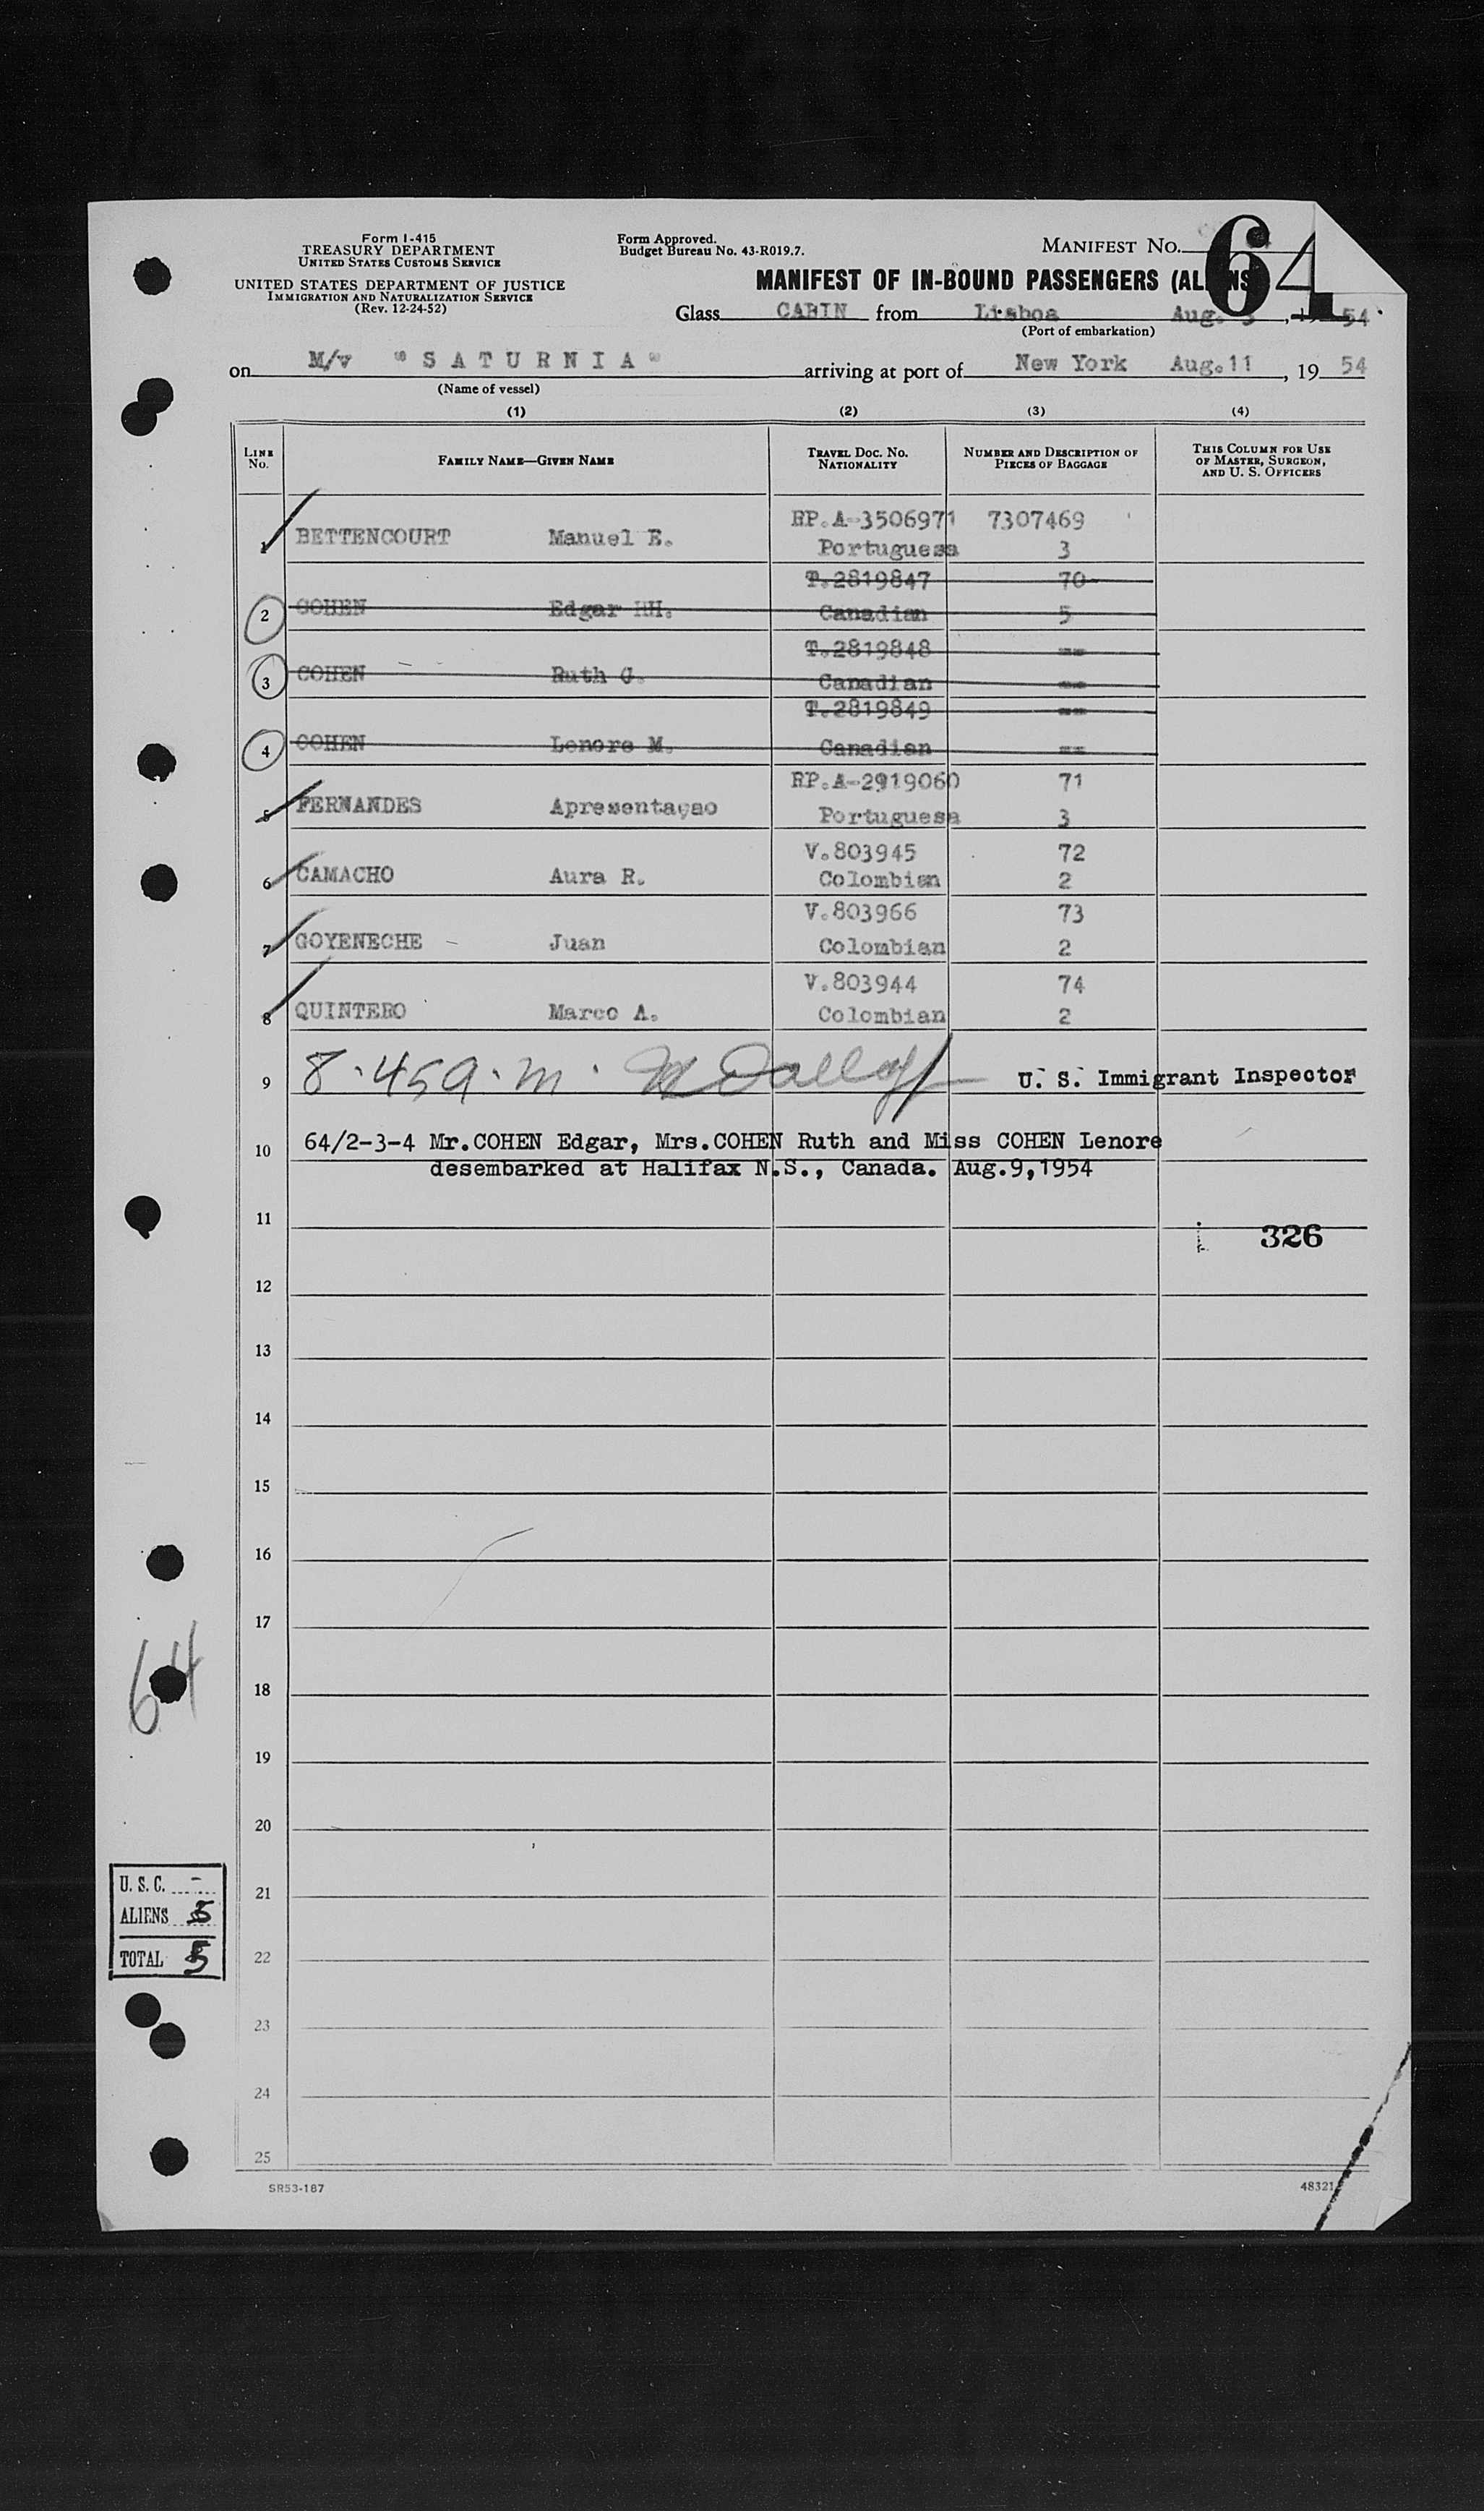 Form I-415
TREASURY DEPARTMENT
UNITED STATES CUSTOMS SERVICE
UNITED STATES DEPARTMENT OF JUSTICE
IMMIGRATION AND NATURALIZATION SERVICE
(Rev. 12-24-52)
Form Approved.
Budget Bureau No. 43-R019.7.
MANIFEST NO. 64
MANIFEST OF IN-BOUND PASSENGERS (ALIENS
Class CABIN from Lisboa Aug. 3, 1954
(Port of embarkation)
on M/v "SATURNIA" arriving at port of New York Aug.11, 19 54
(Name of vessel)
(1) (2) (3) (4)
LINE No. FAMILY NAME—GIVEN NAME TRAVEL DOC. NO. NATIONALITY NUMBER AND DESCRIPTION OF PIECES OF BAGGAGE THIS COLUMN FOR USE OF MASTER, SURGEON, AND U. S. OFFICERS
RP.A-3506971 7307469
1 BETTENCOURT Manuel E. Portuguesa 3
T.2819847 70
2 COHEN Edgar RH. Canadian 5
T.2819848 --
3 COHEN Ruth G. Canadian --
T.2819849 --
4 COHEN Lenore M. Canadian --
RP.A-2919060 71
5 FERNANDES Apresentaçao Portuguesa 3
V.803945 72
6 CAMACHO Aura R. Colombian 2
V.803966 73
7 GOYENECHE - Juan Colombian 2
V.803944 74
8 QUINTERO Marco A. Colombian 2
9 8.45 a.m. U. S. Immigrant Inspector
10 64/2-3-4 Mr.COHEN Edgar, Mrs.COHEN Ruth and Miss COHEN Lenore
desembarked at Halifax N.S., Canada. Aug.9,1954
11
326
12
13
14
15
16
17
64
18
19
20
U. S. C. -
21
ALIENS 5
22
TOTAL 5
23
24
25
SR53-187 48321